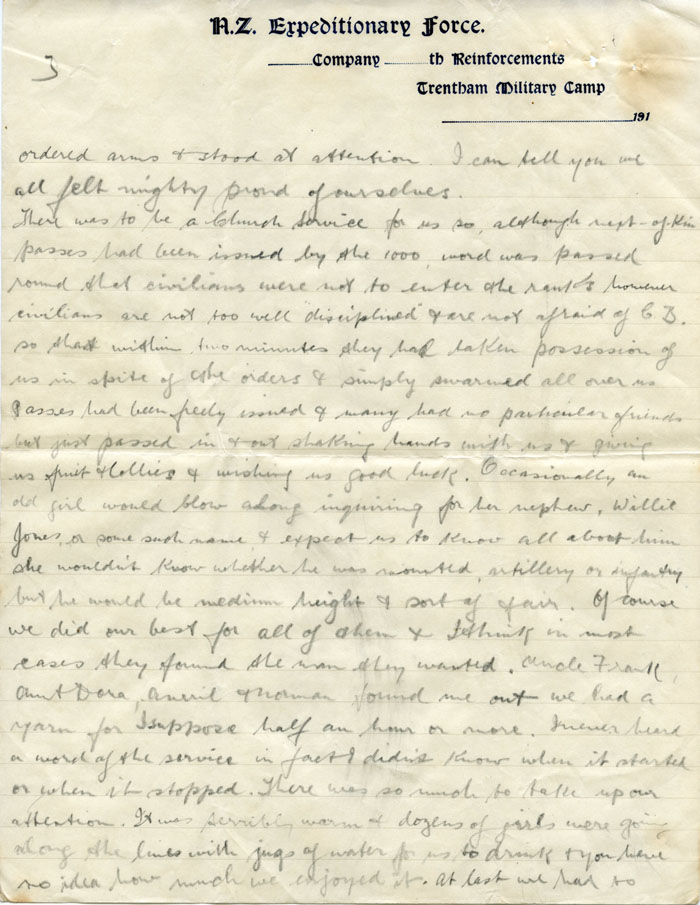 N.Z. Expeditionary Force.
3
Company th Reinforcements
Trentham Military Camp
191
ordered arms & stood at attention. I can tell you we
all felt mighty proud of ourselves.
There was to be a Church Service for us so, although next-of-kin
passes had been issued by the 1000, word was passed
round that civilians were not to enter the ranks however
civilians are not too well "disciplined" & are not afraid of C.B.
so that within two minutes they had taken possession of
us in spite of the orders & simply swarmed all over us
Passes had been freely issued & many had no particular friends
but just passed in & out shaking hands with us & giving
us fruit & lollies & wishing us good luck. Occasionally an
old girl would blow along inquiring for her nephew, Willie
Jones, or some such name & expect us to know all about him
she wouldn't know whether he was mounted, artillery or infantry
but he would be medium height & sort of fair. Of course
we did our best for all of them & I think in most
cases they found the man they wanted. Uncle Frank,
Aunt Dora, & Norman found me out we had a
yarn for I suppose half an hour or more. I never heard
a word of the service in fact I didn't know when it started
or when it stopped. There was so much to take up our
attention. It was terribly warm & dozens of girls were going
along the lines with jugs of water for us to drink & you have
no idea how much we enjoyed it. At last we had to